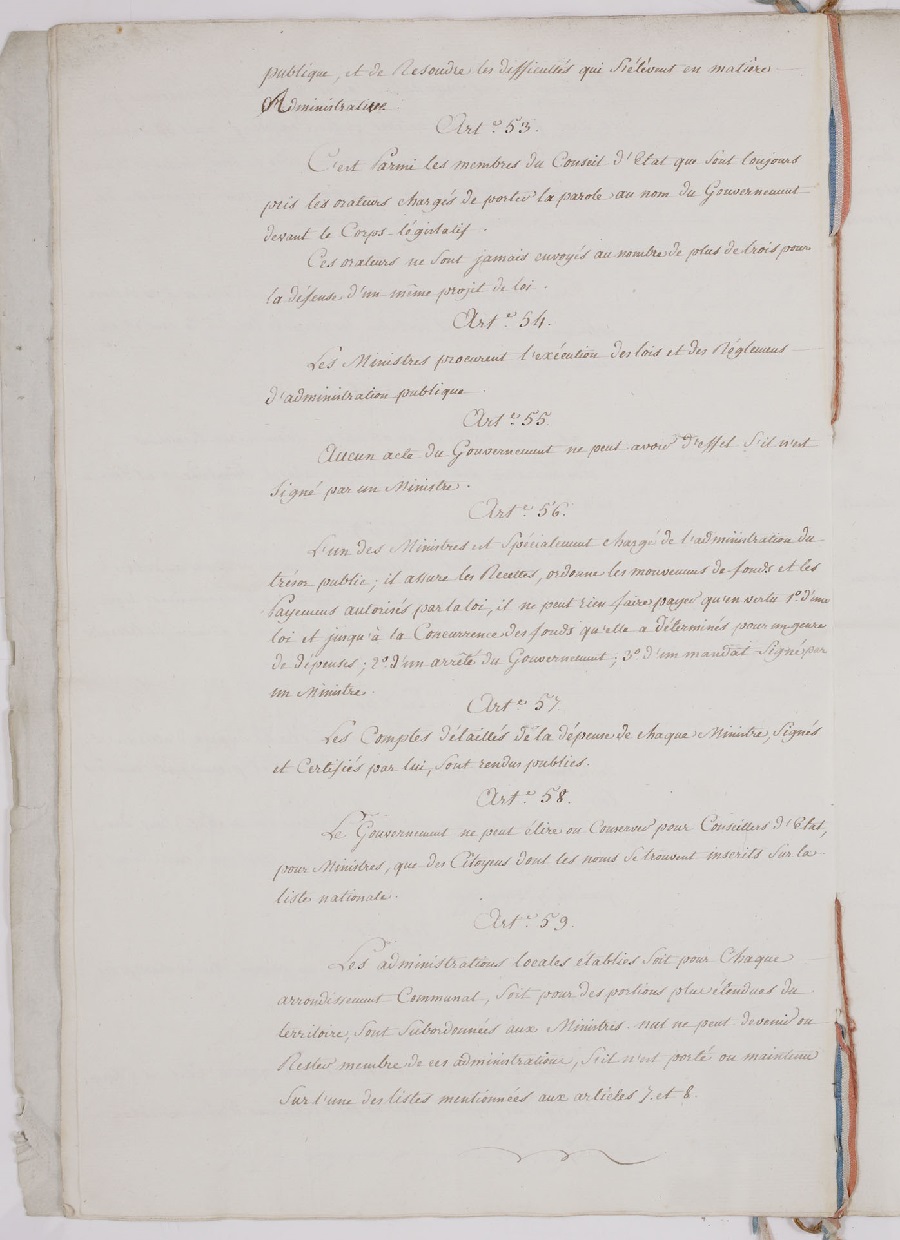 publique, et de Resoudre les difficultés qui S'élèvent en matière
Administrative
Art.^e 53.
C'est Parmi les membres du Conseil d'Etat que Sont toujours
pris les orateurs chargés de porter la parole au nom du Gouvernement
devant le Corps-législatif.
Ces orateurs ne Sont jamais envoyés au nombre de plus de trois pour
la défense d'un même projet de loi.
Art.^e 54.
Les Ministres procurent l'exécution des lois et des Réglemens
d'administration publique.
Art.^e 55.
Aucun acte du Gouvernement ne peut avoir d'effet S'il n'est
Signé par un Ministre.
Art.^e 56.
L'un des Ministres est Spécialement chargé de l'administration du
trésor public; il assure les Recettes, ordonne les mouvemens de fonds et les
Payemens autorisés par la loi, il ne peut rien faire payer qu'en vertu 1.° d'une
loi et jusqu'à la Concurrence des fonds qu'elle a déterminés pour un genre
de dépenses; 2.° d'un arrêté du Gouvernement; 3.° d'un mandat Signé par
un Ministre.
Art.^e 57.
Les Comptes détaillés de la dépense de chaque Ministre, Signés
et Certifiés par lui, Sont rendus publics.
Art.^e 58.
Le Gouvernement ne peut élire ou Conserver pour Conseillers d'Etat,
pour Ministres, que des Citoyens dont les noms Se trouvent inscrits Sur la
liste nationale.
Art.^e 59.
Les administrations locales établies Soit pour Chaque
arrondissement Communal, Soit pour des portions plus étendues du
territoire, Sont Subordonnées aux Ministres. nul ne peut devenir ou
Rester membre de ces administrations, S'il n'est porté ou maintenu
Sur l'une des listes mentionnées aux articles 7. et 8.